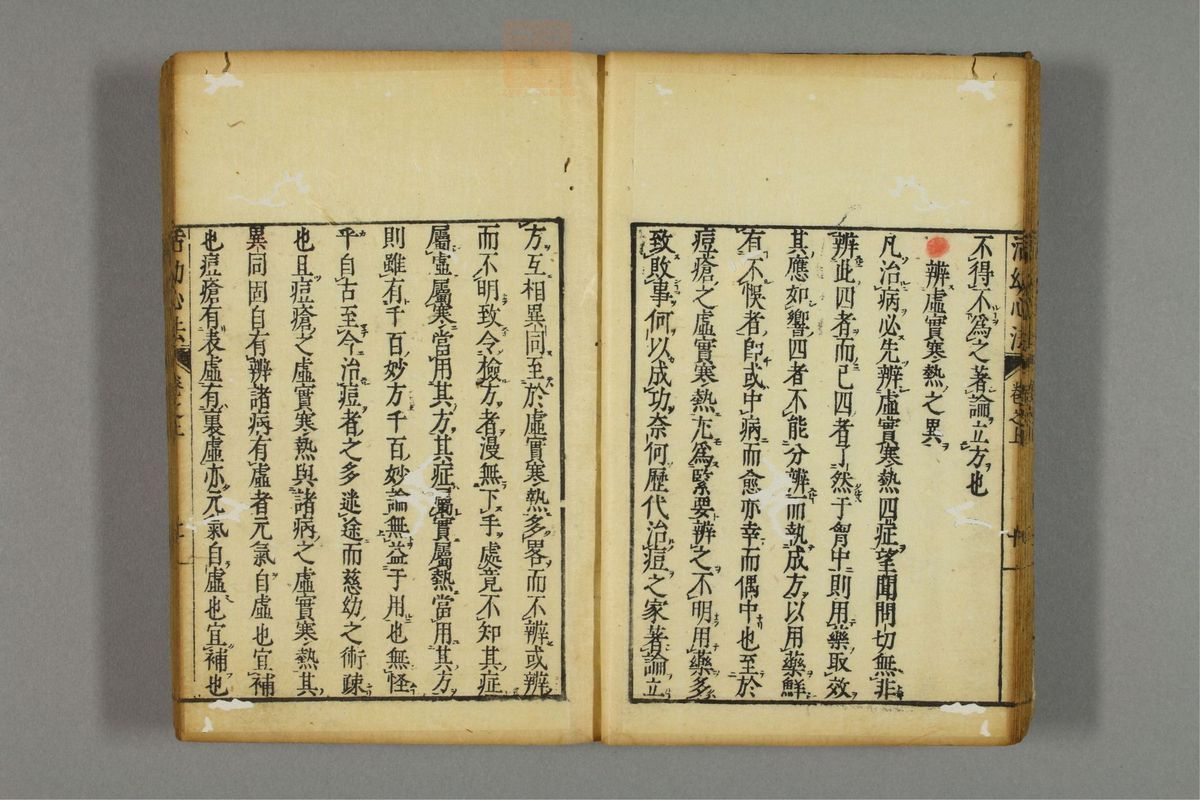 活幼心法
卷之上
不得不爲之著論立方也
辨虛實寒熱之異
凡治病必先辨虛實寒熱四症望聞問切無非
辨此四者而已四者了然于胷中則用藥取效
其應如響四者不能分辨而執成方以用藥鮮
有不悞者卽或中病而愈亦幸而偶中也至於
痘瘡之虛實寒熱尢爲緊要辨之不明用藥多
致敗事何以成功奈何歷代治痘之家著論立
方互相異同至於虛實寒熱多畧而不辨或辨
而不明致令檢方者漫無下手處竟不知其症
屬虛屬寒當用其方其症屬實屬熱當用其方
則雖有千百妙方千百妙論無益于用也無怪
乎自古至今治痘者之多迷途而慈幼之術疎
也且痘瘡之虛實寒熱與諸病之虛實寒熱其
異同固自有辨諸病有虛者元氣自虛也宜補
也痘瘡有表虛有裏虛亦元氣自虛也宜補也
活幼心法
卷之上